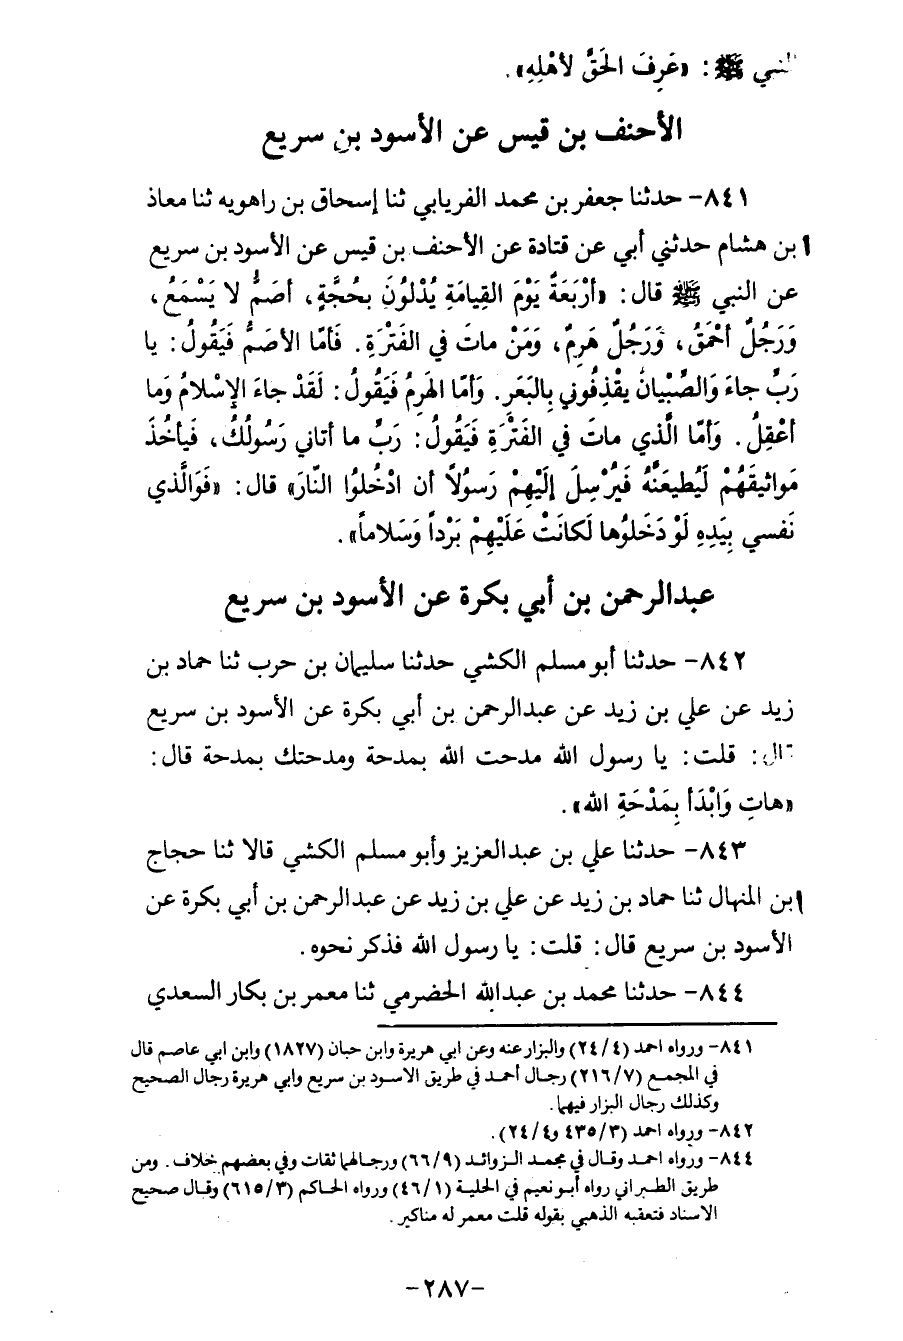 النبي ﷺ: «عَرِفَ الحَقَّ لأهْلِهِ».
الأحنف بن قيس عن الأسود بن سريع
٨٤١- حدثنا جعفر بن محمد الفريابي ثنا إسحاق بن راهويه ثنا معاذ
ابن هشام حدثني أبي عن قتادة عن الأحنف بن قيس عن الأسود بن سريع
عن النبي ﷺ قال: «أرْبَعَةٌ يَوْمَ القِيامَةِ يُدْلُونَ بحُجَّةٍ، أصَمُّ لا يَسْمَعُ،
وَرَجُلٌ أحْمَقُ، وَرَجُلٌ هَرِمٌ، وَمَنْ ماتَ في الفَتْرَةِ. فَأمّا الأصَمُّ فَيَقُولُ: يا
رَبِّ جاءَ وَالصِّبْيانُ يقْذِفُوني بِالبَعَرِ. وَأمّا الهَرِمُ فَيَقُولُ: لَقَدْ جاءَ الإسْلامُ وَما
أعْقِلُ. وَأمّا الَّذي ماتَ في الفَتْرَةِ فَيَقُولُ: رَبِّ ما أتاني رَسُولُكُ، فَيأخُذَ
مَواثيقَهُمْ لَيُطيعَنَّهُ فَيُرْسِلَ إلَيْهِمْ رَسُولاً أن ادْخُلُوا النّارَ» قال: «فَوَالَّذي
نَفسي بِيَدِهِ لَوْ دَخَلُوها لَكانَتْ عَلَيْهِمْ بَرْداً وَسَلاماً».
عبدالرحمن بن أبي بكرة عن الأسود بن سريع
٨٤٢- حدثنا أبو مسلم الكشي حدثنا سليمان بن حرب ثنا حماد بن
زيد عن علي بن زيد عن عبدالرحمن بن أبي بكرة عن الأسود بن سريع
قال: قلت: يا رسول الله مدحت الله بمدحة ومدحتك بمدحة قال:
«هاتِ وَابْدَأ بِمَدْحَةِ الله».
٨٤٣- حدثنا علي بن عبدالعزيز وأبو مسلم الكشي قالا ثنا حجاج
ابن المنهال ثنا حماد بن زيد عن علي بن زيد عن عبدالرحمن بن أبي بكرة عن
الأسود بن سريع قال: قلت: يا رسول الله فذكر نحوه.
٨٤٤- حدثنا محمد بن عبدالله الحضرمي ثنا معمر بن بكار السعدي
٨٤١- ورواه احمد (٢٤/٤) والبزار عنه وعن ابي هريرة وابن حبان (١٨٢٧) وابن ابي عاصم قال
في المجمع (٢١٦/٧) رجال أحمد في طريق الاسود بن سريع وابي هريرة رجال الصحيح
وكذلك رجال البزار فيهما.
٨٤٢- ورواه احمد (٤٣٥/٣ و٢٤/٤).
٨٤٤- ورواه احمد وقال في مجمد الزوائد (٦٦/٩) ورجالها ثقات وفي بعضهم خلاف. ومن
طريق الطبراني رواه أبو نعيم في الحلية (٤٦/١) ورواه الحاكم (٦١٥/٣) وقال صحيح
الاسناد فتعقبه الذهبي بقوله قلت معمر له مناكير.
-٢٨٧-